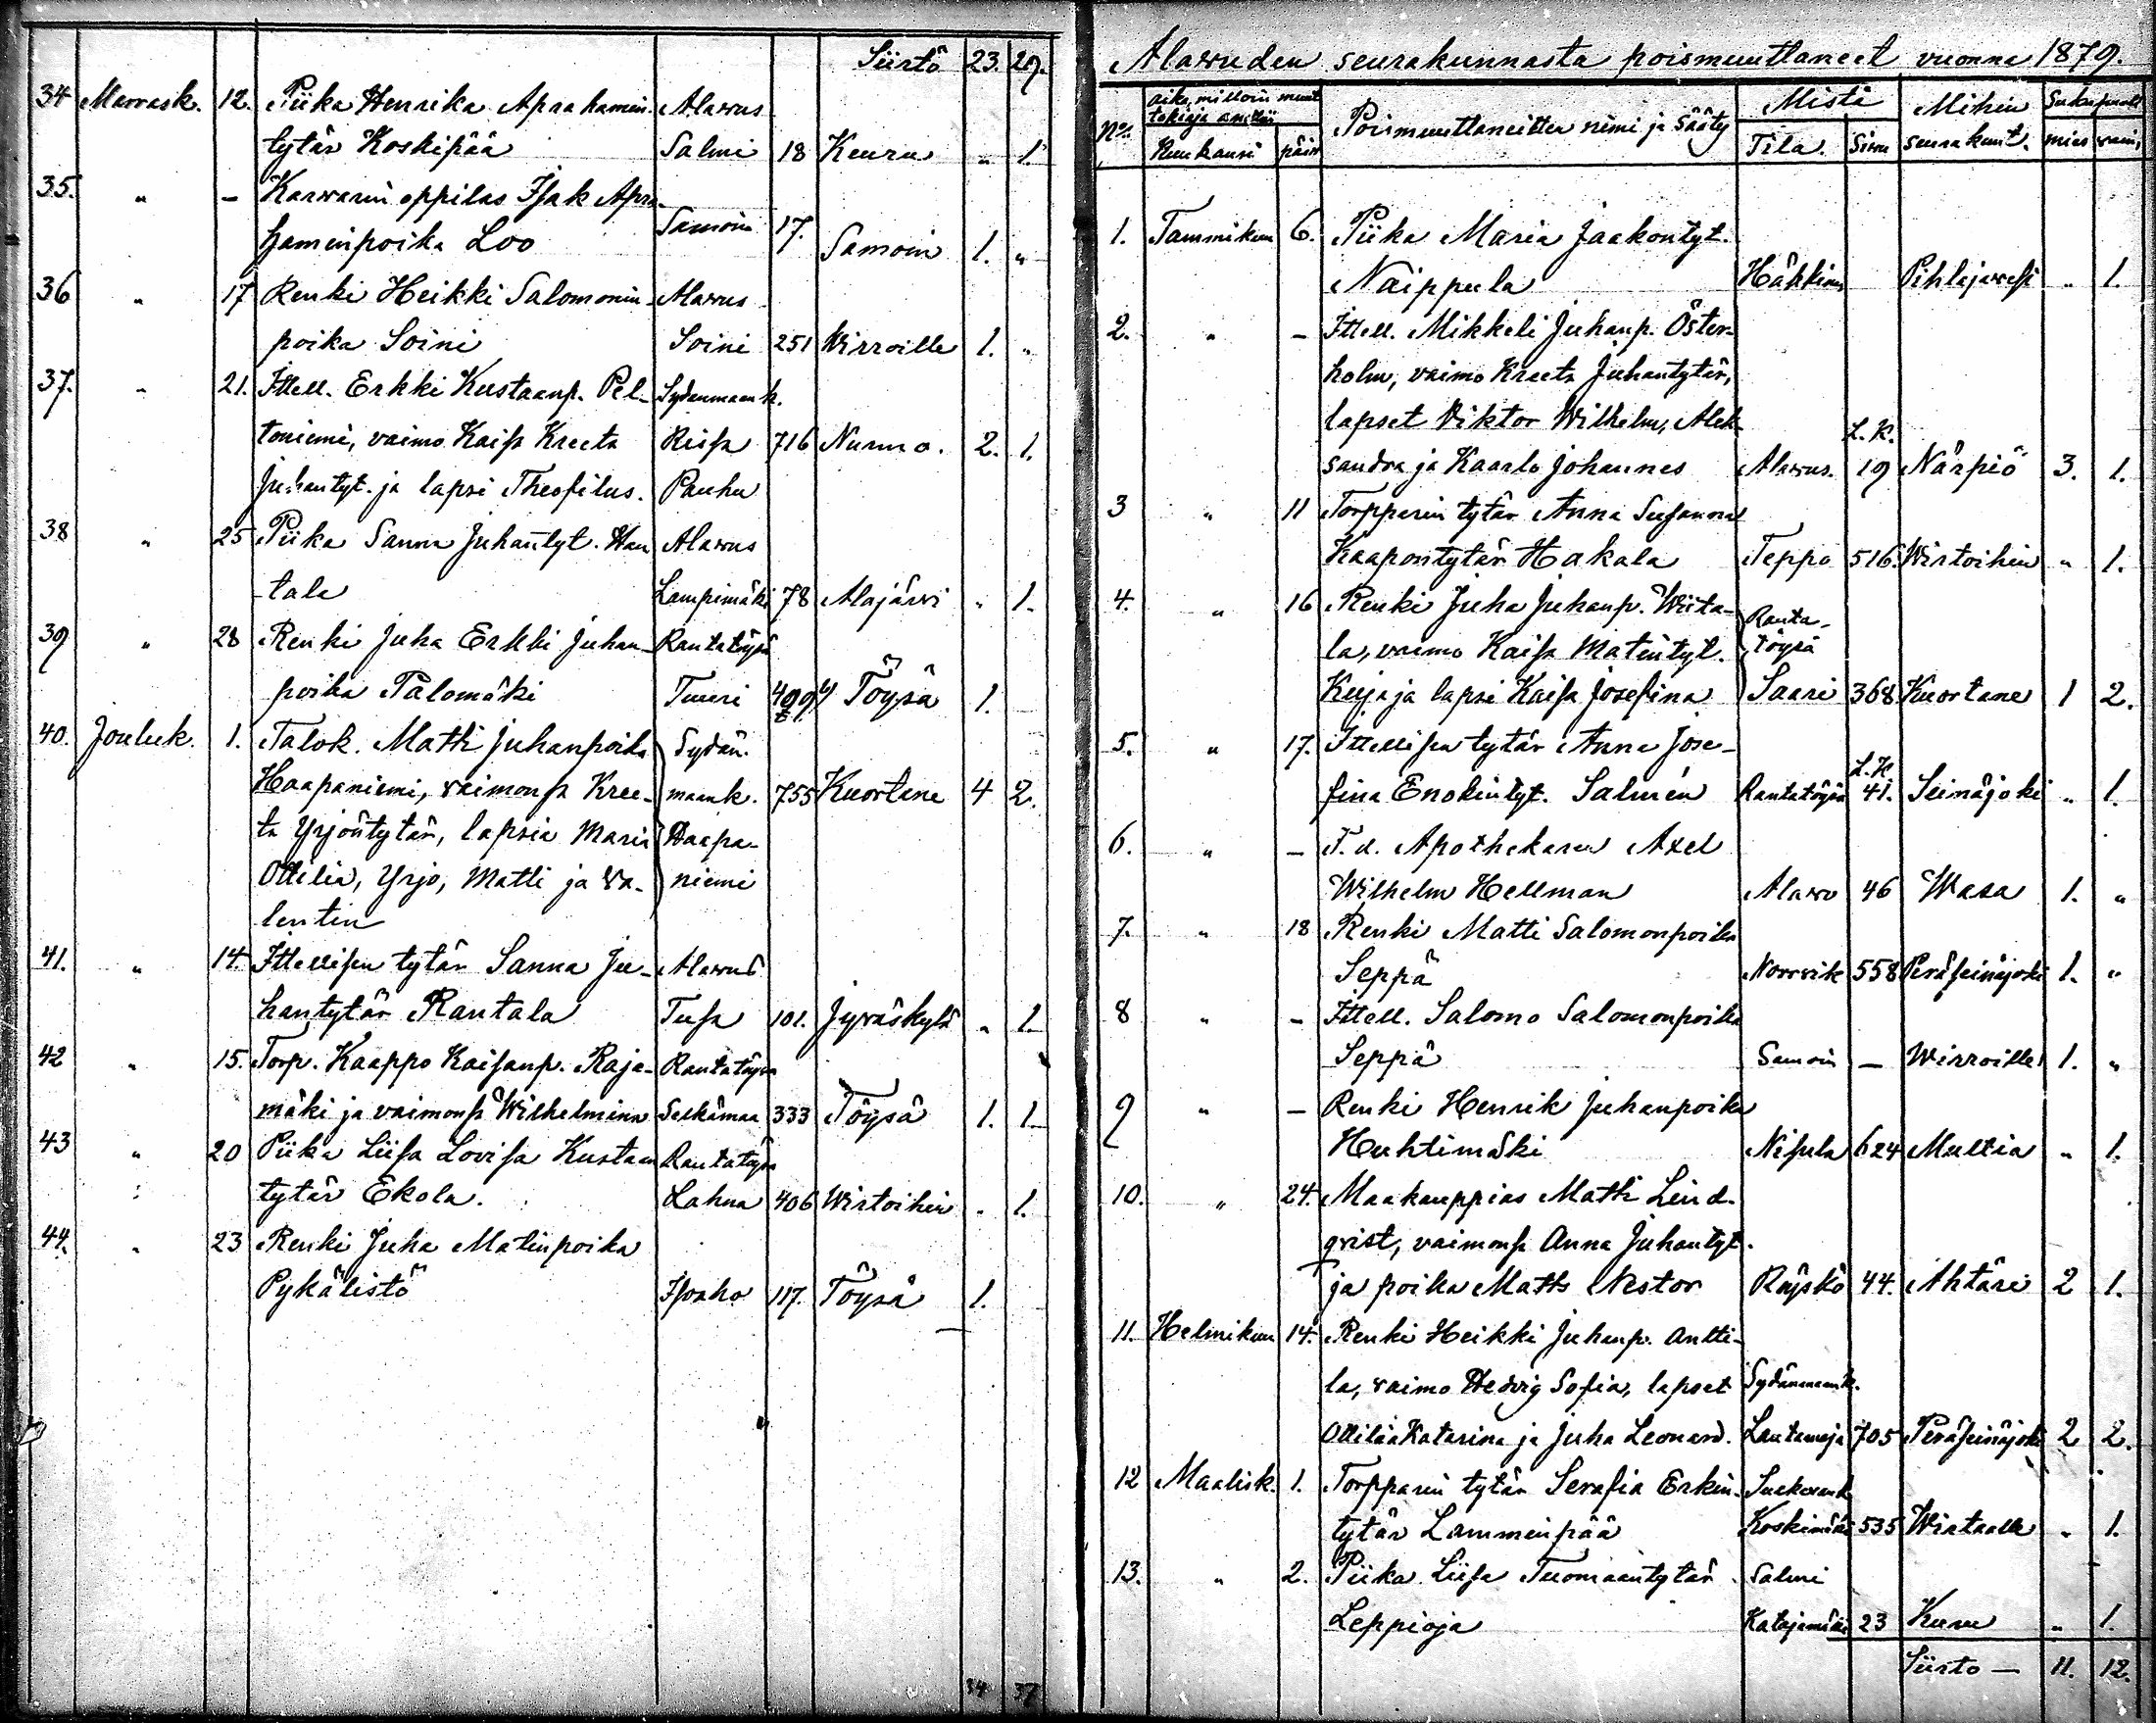 Siirto 23. 29.
34 Marrask. 12. Piika Henrika Aprahamin- Alawus
tytär Koskipää Salmi 18 Keuru „ 1.
35. „ – Karwarin oppilas Isak Apra-
haminpoika Loo Samoin 17. Samoin 1. „
36 „ 17 Renki Heikki Salomonin- Alawus
poika Soini Soini 251 Wirroille 1. „
37. „ 21. Ittell. Erkki Kustaanp. Pel- Sydänmaank.
toniemi, vaimo Kaisa Kreeta 716 Nurmo. 2. 1.
Juhantyt. ja lapsi Theofilus. Pauhu
38 „ 25 Piika Sanna Juhantyt. Alawus
tala Lampimäki 78 Alajärwi „ 1.
39 „ 28 Renki Juha Erkki Juhan- Rantatöysä
poika Talomäki Tuuri 499 Töysä 1.
40. Jouluk. 1. Talok. Matti Juhanpoika Sydän-
Haapaniemi, vaimonsa Kree- maank. 755 Kuortane 4 2.
ta Yrjöntytär, lapsia Maria Haapa-
Ottilia, Yrjö, Matti ja Va- niemi
lentin
41. „ 14. Ittellisen tytär Sanna Ju- Alawus
hantytär Rantala Tusa 101. Jyväskylä „ 1.
42 „ 15. Torp. Kaappo Kaisanp. Raja- Rantatöysä
mäki ja vaimonsa Wilhelmina 333 Töysä 1. 1.
43 „ 20 Piika Liisa Lovisa Kustaan Rantatöysä
tytär Ekola. Lahna 406 Wirtoihin „ 1.
44. „ 23 Renki Juha Matinpoika
Pykälistö Isoaho 117. Töysä 1.
34 37
Alawuden seurakunnasta poismuuttaneet vuonna 1879.
No. aika, milloin muut- Poismuuttaneitten nimi ja sääty Mistä Mihin Sukupuoli
tokirja annettiin
Kuukausi päiv Tila. Sivu seurakunt. mies vaim.
1. Tammikuu 6. Piika Maria Jaakontyt.
Näippula Häkkinen Pihlajavesi „ 1.
2. „ – Ittell. Mikkeli Juhanp. Öster-
holm, vaimo Kreeta Juhantytär,
lapset Viktor Wilhelm, Alek- L. K.
sandra ja Kaarlo Johannes Alawus. 19 Närpiö 3. 1.
3 „ 11 Torpparin tytär Anna Susanna
Kaapontytär Hakala Teppo 516. Wirtoihin „ 1.
4. „ 16 Renki Juha Juhanp. Wiita- Ranta-
la, vaimo Kaisa Matintyt. töysä
Keija ja lapsi Kaisa Josefina Saari 368 Kuortane 1 2.
5. „ 17. Ittellisen tytär Anna Jose- L. K.
fina Enokintyt. Salmén Rantatöysä 41. Seinäjoki „ 1.
6. „ – F. d. Apothekaren Axel
Wilhelm Hellman Alawo 46 Wasa 1. „
7. „ 18 Renki Matti Salomonpoika
Seppä Norrvik 558 Peräseinäjoki 1. „
8 „ – Ittell. Salomo Salomonpoika
Seppä Samoin – Wirroille 1. „
9 „ – Renki Henrik Juhanpoika
Huhtimäki Nisula 624 Multia „ 1.
10. „ 24. Maakauppias Matti Lind-
qvist, vaimonsa Anna Juhantyt.
ja poika Matts Nestor Räyskö 44. Ähtäri 2 1.
11. Helmikuu 14. Renki Heikki Juhanp. Antti-
la, vaimo Hedvig Sofia, lapset Sydänmaank.
Ottilia Katarina ja Juha Leonard. Lautamaja 705 Peräseinäjoki 2 2.
12 Maalisk. 1. Torpparin tytär Serafia Erkin-
tytär Lamminpää Koskimäki 535 Wirtaalle „ 1.
13. „ 2. Piika Liisa Tuomaantytär Salmi
Leppioja Katajamäki 23 Kuru „ 1.
Siirto — 11. 12.